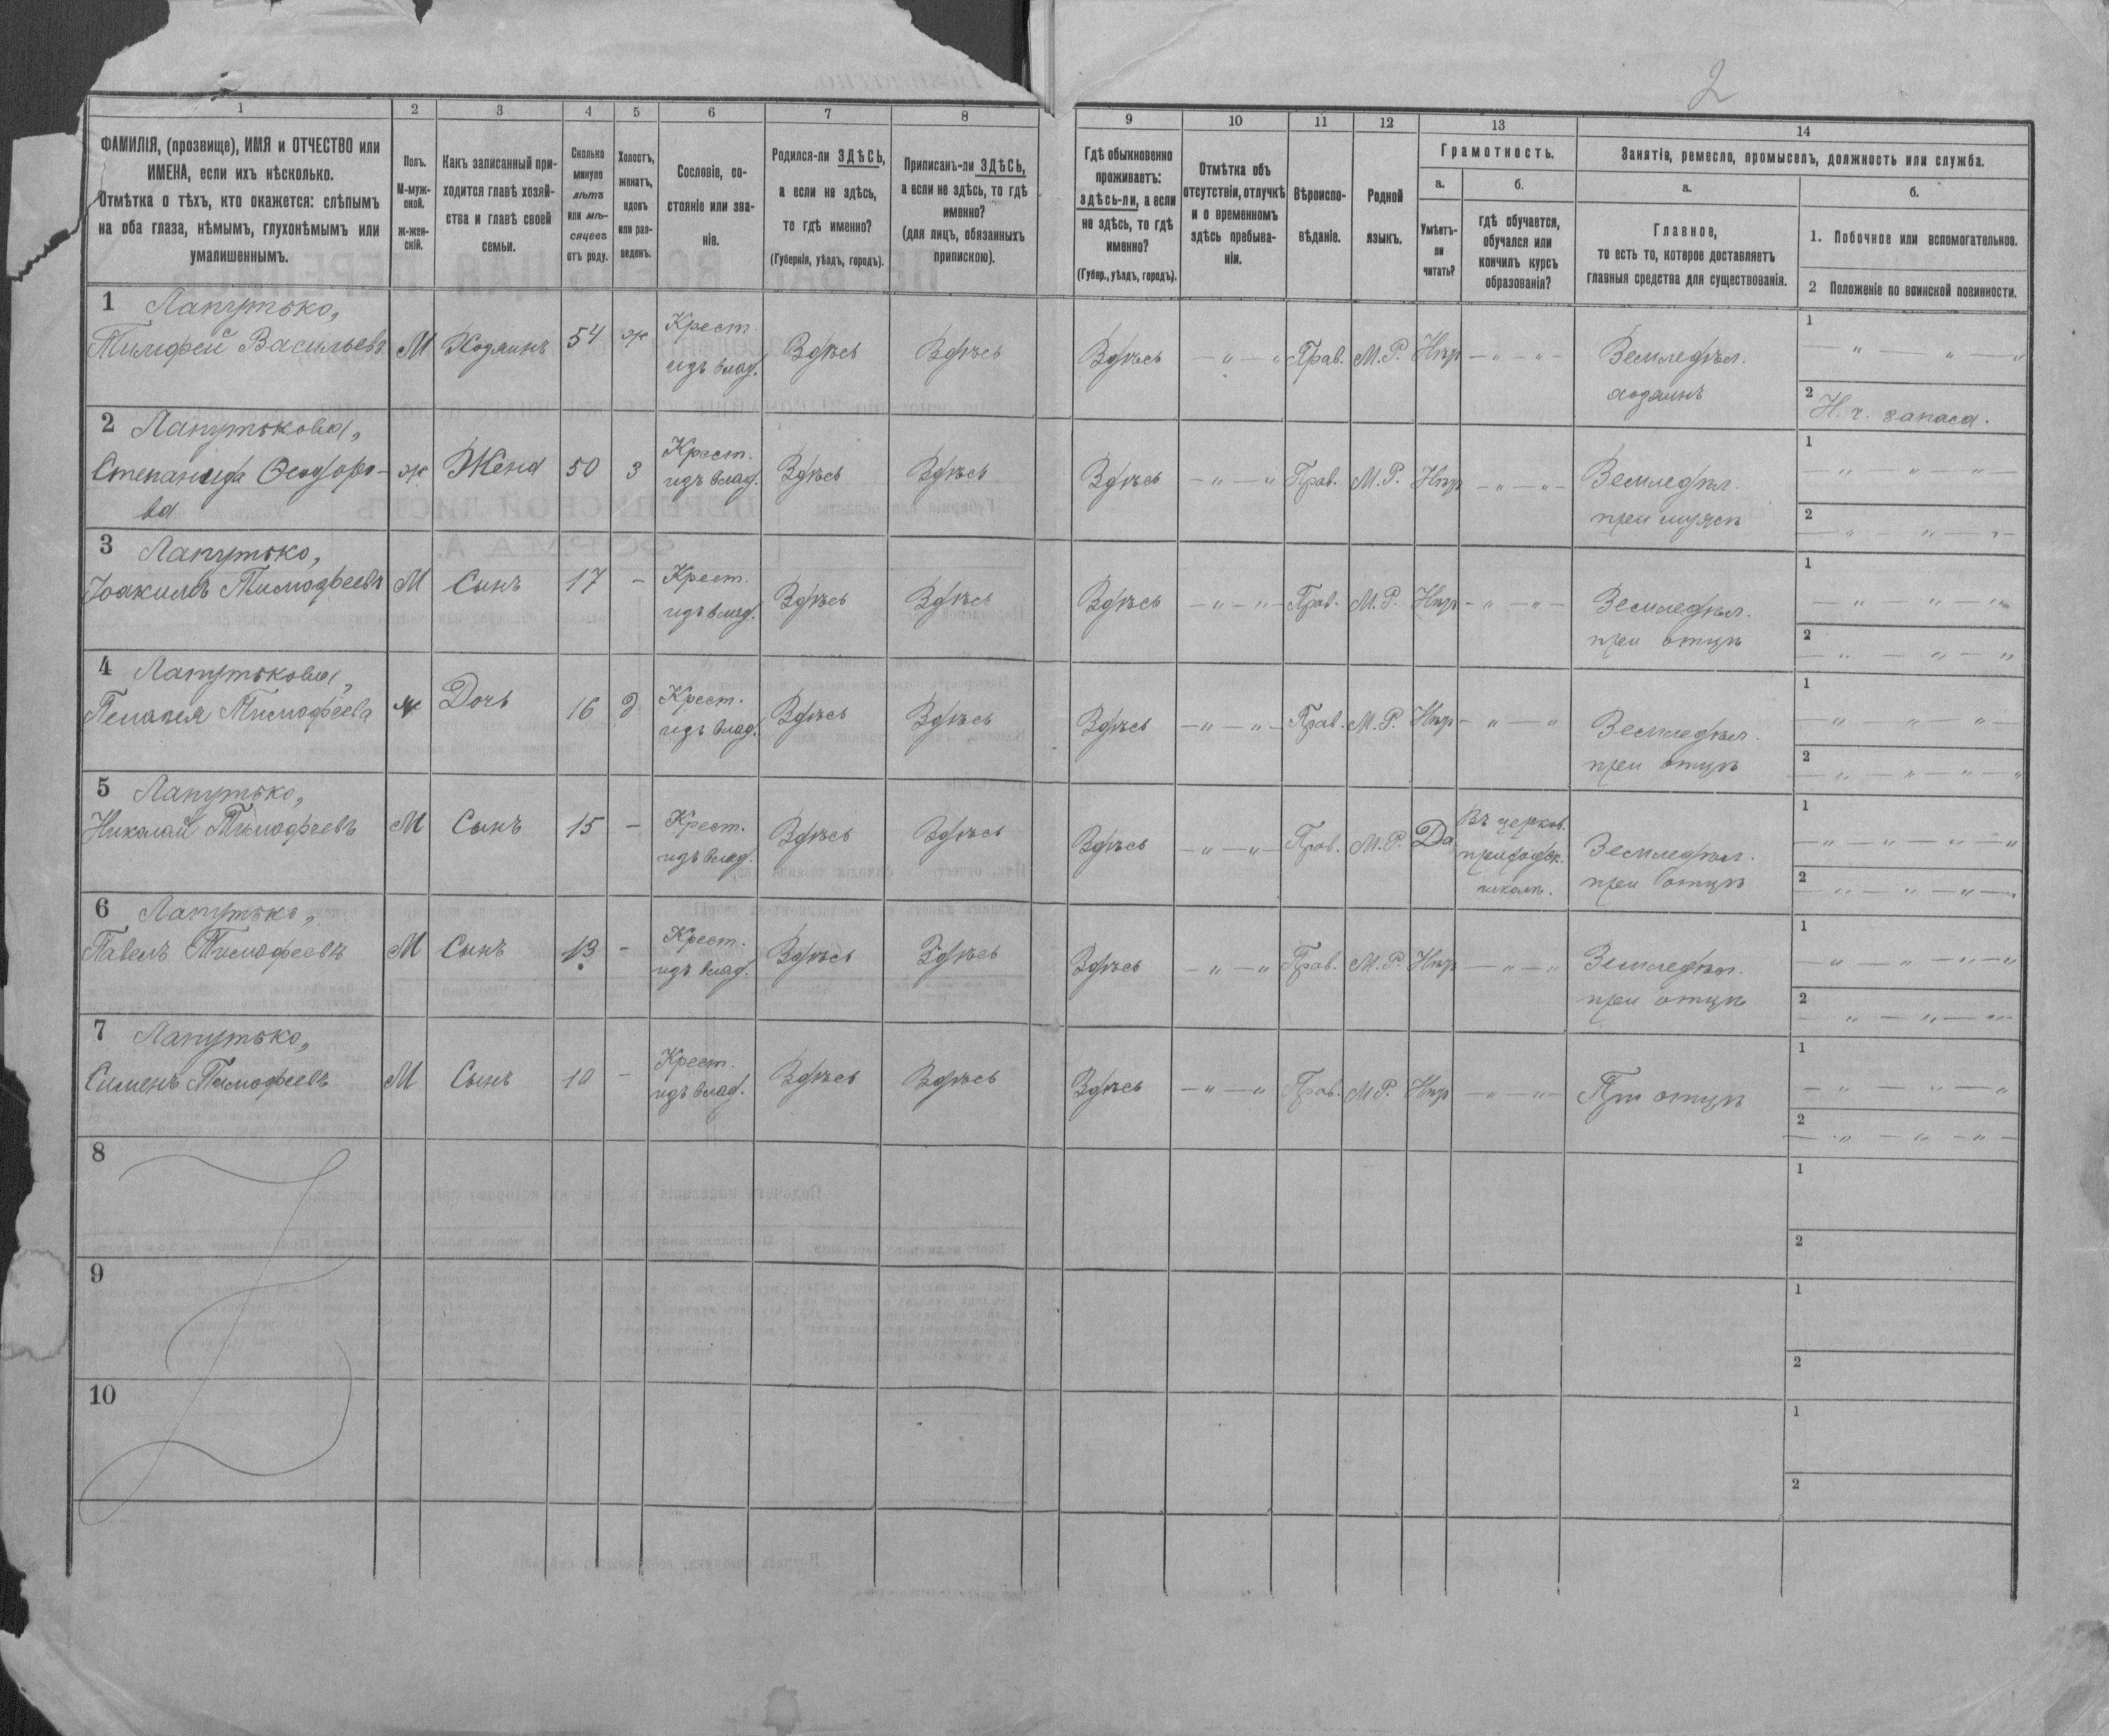 2
1 2 3 4 5 6 7 8 9 10 11 12 13 14
ФАМИЛІЯ, (прозвище), ИМЯ и ОТЧЕСТВО или
ИМЕНА, если ихъ нѣсколько.
Отмѣтка о тѣхъ, кто окажется: слѣпымъ
на оба глаза, нѣмымъ, глухонѣмымъ или
умалишеннымъ.
Полъ.
М-муж-
ской.
Ж-жен-
скій.
Какъ записанный при-
ходится главѣ хозяй-
ства и главѣ своей
семьи.
Сколько
минуло
лѣтъ
или мѣ-
сяцевъ
отъ роду.
Холостъ,
женатъ,
вдовъ
или раз-
веденъ.
Сословіе, со-
стояніе или зва-
ніе.
Родился-ли ЗДѢСЬ,
а если не здѣсь,
то гдѣ именно?
(Губернія, уѣздъ, городъ).
Приписанъ-ли ЗДѢСЬ,
а если не здѣсь, то гдѣ
именно?
(для лицъ, обязанныхъ
припискою).
Гдѣ обыкновенно
проживаетъ:
здѣсь-ли, а если
не здѣсь, то гдѣ
именно?
(Губер., уѣздъ, городъ).
Отмѣтка объ
отсутствіи, отлучкѣ
и о временномъ
здѣсь пребыва-
ніи.
Вѣроиспо-
вѣданіе.
Родной
языкъ.
Грамотность.
а.
Умѣетъ-
ли
читать?
б.
гдѣ обучается,
обучался или
кончилъ курсъ
образованія?
Занятіе, ремесло, промыселъ, должность или служба.
а.
Главное,
то есть то, которое доставляетъ
главныя средства для существованія.
б.
1. Побочное или вспомогательное.
2 Положеніе по воинской повинности.
1 Лапутько,
Тимофей Васильевъ М Хозяинъ 54 ж Крест. Здѣсь Здѣсь Здѣсь — " — " Прав. М.Р. Нѣт — " — " — Земледѣл. 1 — " — " — "
изъ влад. хозяинъ 2 Н. ч. запаса.
2 Лапутькова,
Степанида Ѳеодоро- ж Жена 50 з Крест. Здѣсь Здѣсь Здѣсь — " — " Прав. М.Р. Нѣт — " — " — Земледѣл. 1 — " — " —
ва изъ влад. при мужѣ 2 — " — " —
3 Лапутько,
Іоакимъ Тимофеевъ М Сынъ 17 - Крест. Здѣсь Здѣсь Здѣсь — " — " — Прав. М.Р. Нѣт — " — " — Земледѣл. 1 — " — " — "
изъ влад. при отцѣ 2 — " — " — "
4 Лапутькова,
Пелагея Тимофеева ж Дочь 16 д Крест. Здѣсь Здѣсь Здѣсь — " — " — Прав. М.Р. Нѣт — " — " Земледѣл. 1 — " — " —
изъ влад. при отцѣ 2 — " — " — " — "
5 Лапутько,
Николай Тимофеевъ М Сынъ 15 - Крест. Здѣсь Здѣсь Здѣсь — " — " — Прав. М.Р. Да Въ церков. Земледѣл. 1 — " — " — " — "
изъ влад. приходск. при отцѣ 2 — " — " — " —
школѣ.
6 Лапутько,
Павелъ Тимофеевъ М Сынъ 13 - Крест. Здѣсь Здѣсь Здѣсь — " — " Прав. М.Р. Нѣт — " — " Земледѣл. 1 — " — " — " — "
изъ влад. при отцѣ 2 — " — " — "
7 Лапутько,
Сименъ Тимофеевъ М Сынъ 10 - Крест. Здѣсь Здѣсь Здѣсь — " — " Прав. М.Р. Нѣт — " — " — При отцѣ 1 — " — " — "
изъ влад. 2 — " — " — " —
8 1
2
9 1
2
10 1
2